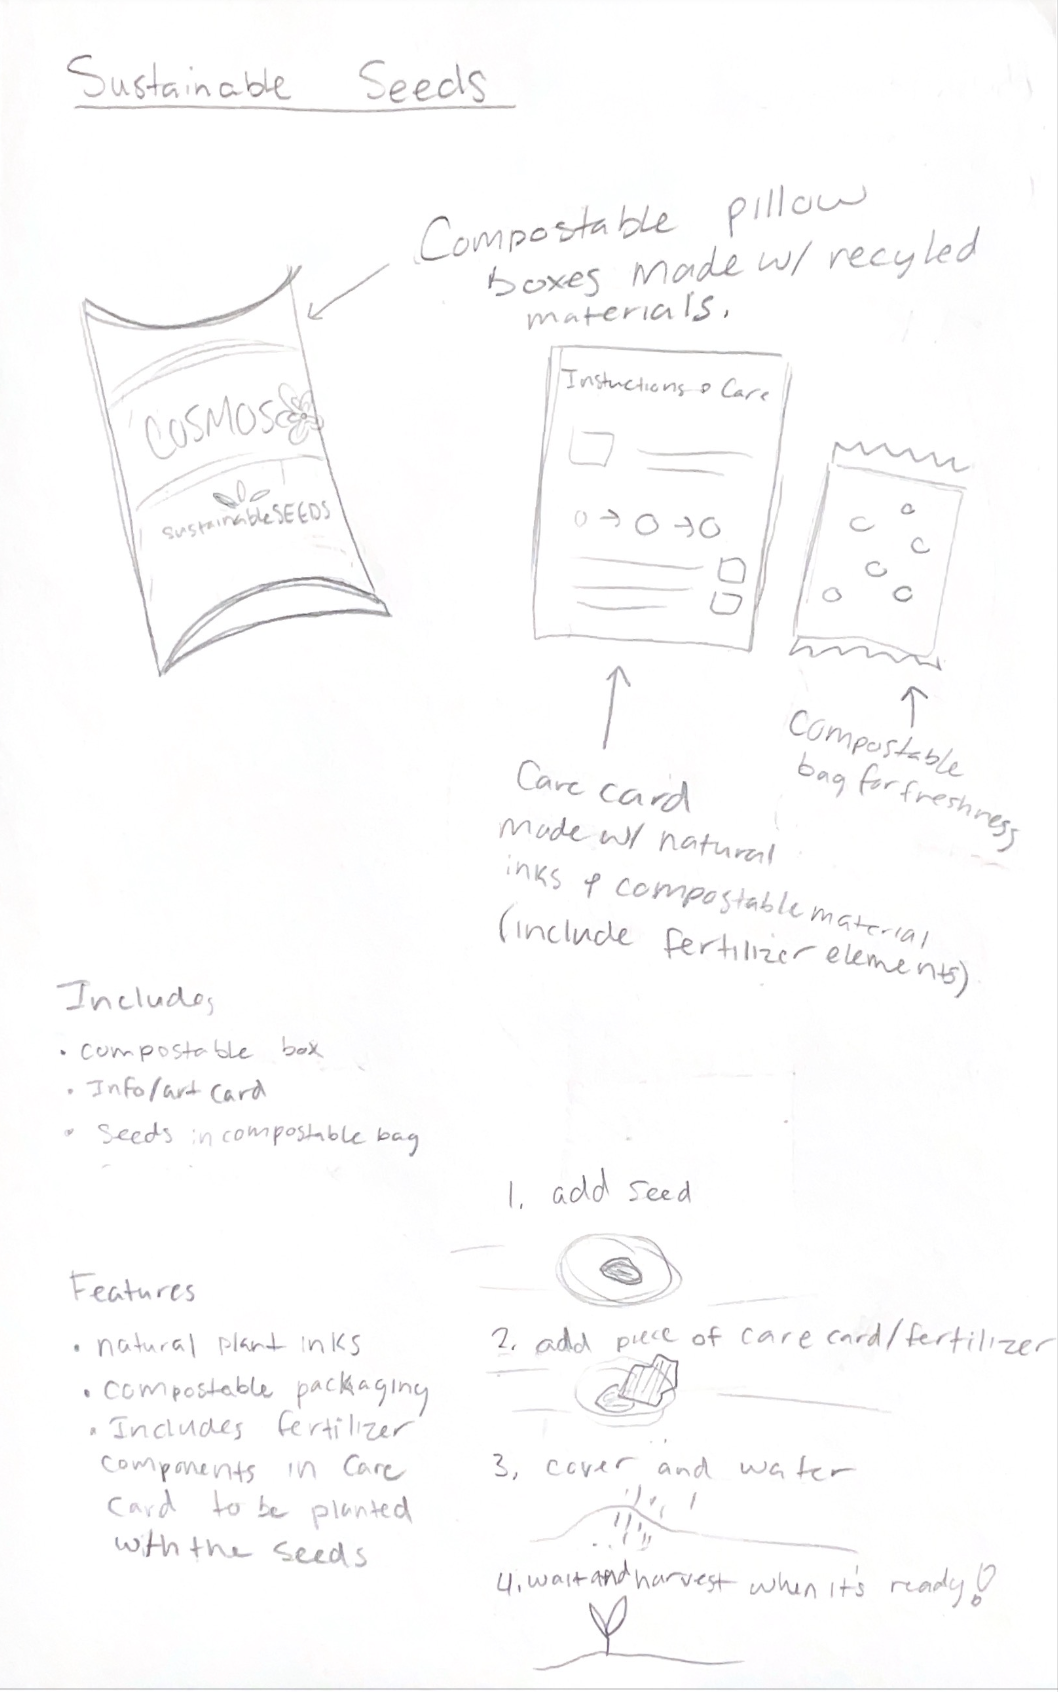 Sustainable Seeds
Compostable pillow
boxes made w/ recyled
materials.
COSMOS
sustainableSEEDS
Instuctions & Care
Compostable
bag for freshness
Care card
made w/ natural
inks & compostable material
(include fertilizer elements)
Includes
• compostable box
• Info/art card
• Seeds in compostable bag
1. add seed
Features
• natural plant inks
• compostable packaging
• Includes fertilizer
components in care
card to be planted
with the seeds
2. add piece of care card/fertilizer
3, cover and water
4. wait and harvest when it's ready!